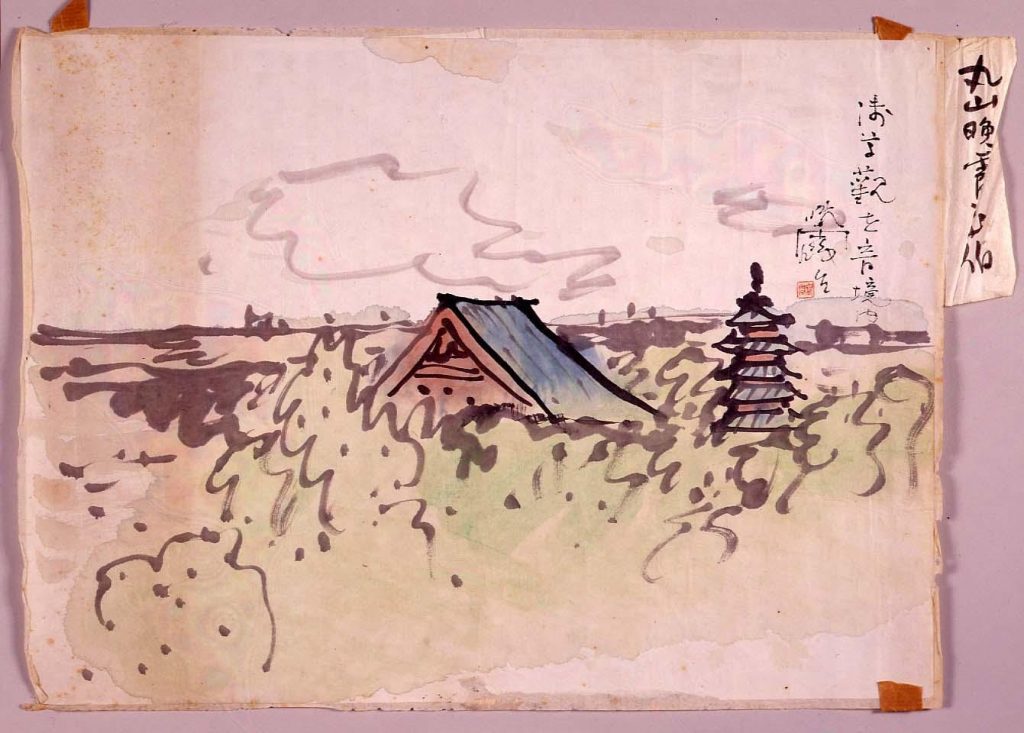 丸山晩霞画伯
浅草觀世音境内
晩霞生